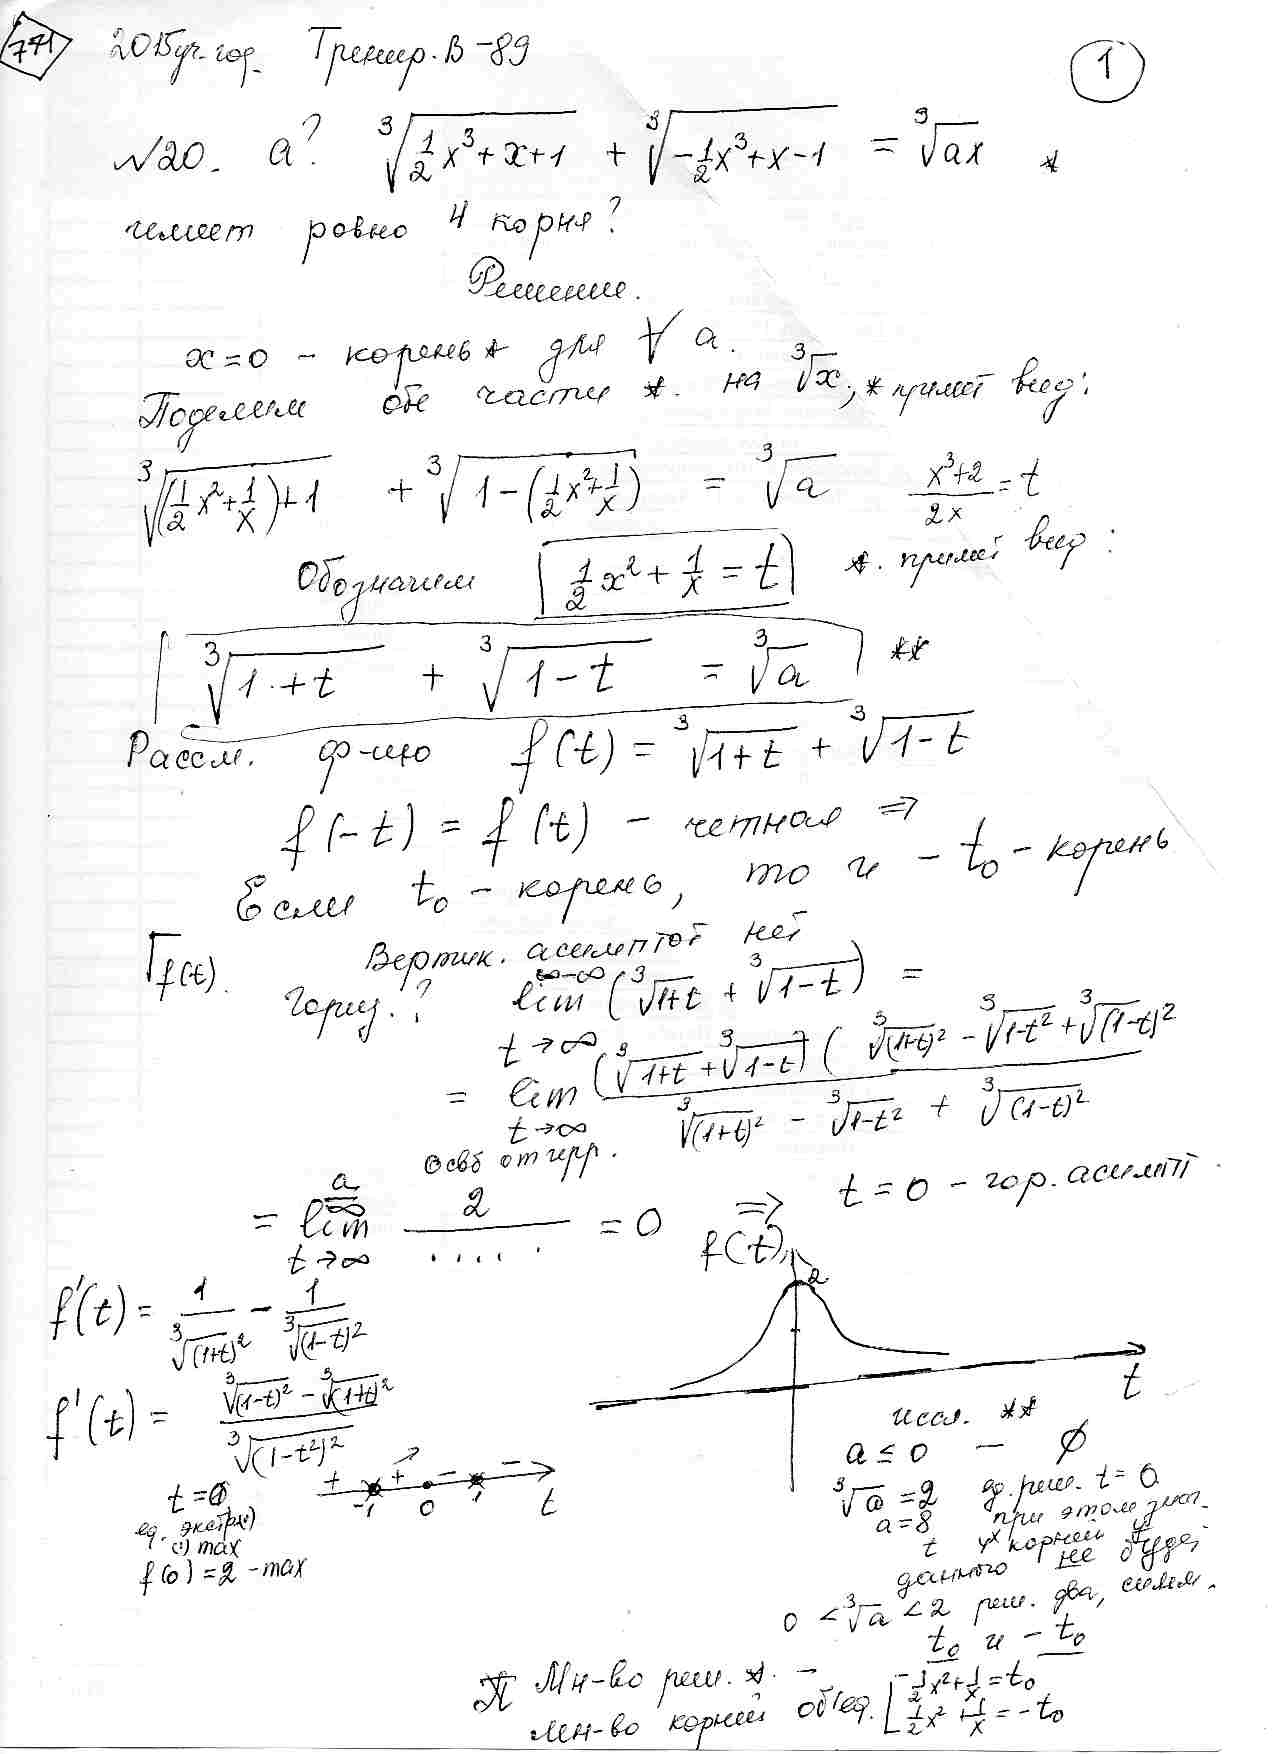 771 2015 уч. год. Тренир. В-89 1
№20. a? ∛(½x³+x+1) + ∛(-½x³+x-1) = ∛(ax) *
имеет ровно 4 корня?
Решение.
x=0 - корень * для ∀ a.
Поделим обе части *. на ∛x; * примет вид:
∛((½x²+1/x)+1) + ∛(1-(½x²+1/x)) = ∛a (x³+2)/2x = t
Обозначим ½x² + 1/x = t *. примет вид:
∛(1+t) + ∛(1-t) = ∛a **
Рассм. ф-цию f(t) = ∛(1+t) + ∛(1-t)
f(-t) = f(t) - четная ⇒
Если t₀ - корень, то и -t₀ - корень
f(t). Вертик. асимптот нет
Гориз.? lim t→∞ (∛(1+t) + ∛(1-t)) = ∞-∞
= lim t→∞ (∛(1+t) + ∛(1-t)) (∛(1+t)² - ∛(1-t²) + ∛(1-t)²) / (∛(1+t)² - ∛(1-t²) + ∛(1-t)²)
Освб от ирр.
= lim t→∞ 2/..... = 0 ⇒ t=0 - гор. асимпт.
a/∞
f(t)
2
t
f'(t) = 1/∛(1+t)² - 1/∛(1-t)²
f'(t) = (∛(1-t)² - ∛(1+t)²) / ∛(1-t²)²
+ + - -
-1 0 1 t
t=0
ед. экстр.
max
f(0) = 2 - max
иссл. **
a ≤ 0 - ∅
∛a = 2 ед. реш. t = 0
a=8 при этом знач.
t 4х корней у
данного не будет
0 < ∛a < 2 реш. два, симм.
t₀ и -t₀
Мн-во реш. *. -
мн-во корней объед. [½x²+1/x = t₀
½x² + 1/x = -t₀